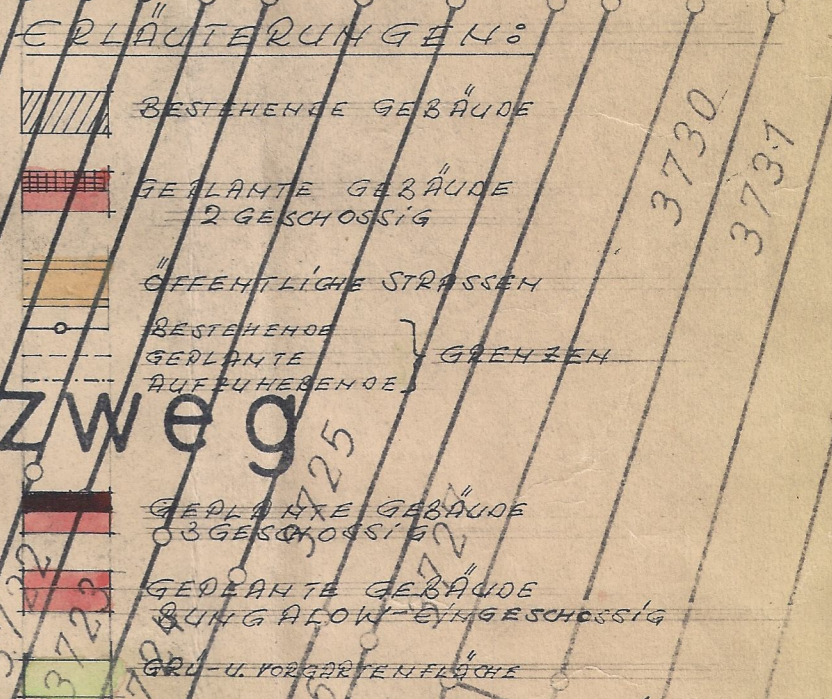 ERLÄUTERUNGEN:
BESTEHENDE GEBÄUDE
GEPLANTE GEBÄUDE
2 GESCHOSSIG
ÖFFENTLICHE STRASSEN
BESTEHENDE
GEPLANTE
AUFZUHEBENDE
GRENZEN
zweg
GEPLANTE GEBÄUDE
3 GESCHOSSIG
GEPLANTE GEBÄUDE
BUNGALOW-EINGESCHOSSIG
GRÜ-U. VORGARTENFLÄCHE
3730
3731
3725
3722
3723